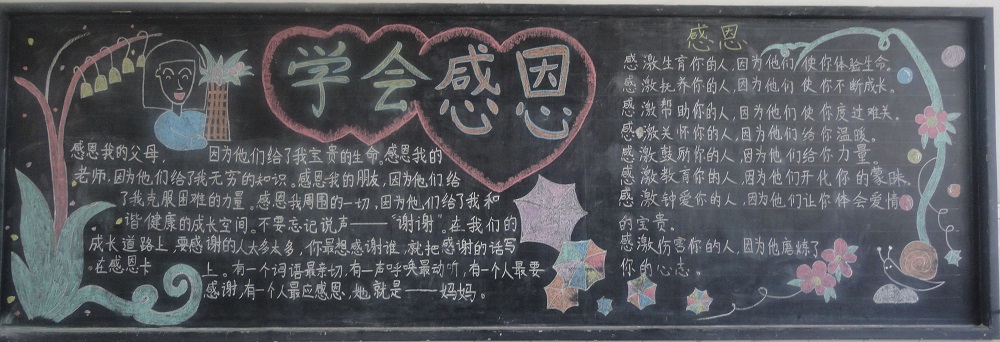 学会感恩
感恩我的父母, 因为他们给了我宝贵的生命,感恩我的
老师,因为他们给了我无穷的知识。感恩我的朋友,因为他们给
了我克服困难的力量,感恩我周围的一切,因为他们给了我和
谐健康的成长空间。不要忘记说声——“谢谢”。在我们的
成长道路上,要感谢的人太多太多,你最想感谢谁,就把感谢的话写
在感恩卡 上。有一个词语最亲切,有一声呼唤最动听,有一个人最要
感谢,有一个人最应感恩,她就是——妈妈。
感恩
感激生育你的人,因为他们使你体验生命。
感激抚养你的人,因为他们使你不断成长。
感激帮助你的人,因为他们使你度过难关。
感激关怀你的人,因为他们给你温暖。
感激鼓励你的人,因为他们给你力量。
感激教育你的人,因为他们开化你的蒙昧。
感激钟爱你的人,因为他们让你体会爱情
的宝贵。
感激伤害你的人,因为他磨炼了
你的心志。